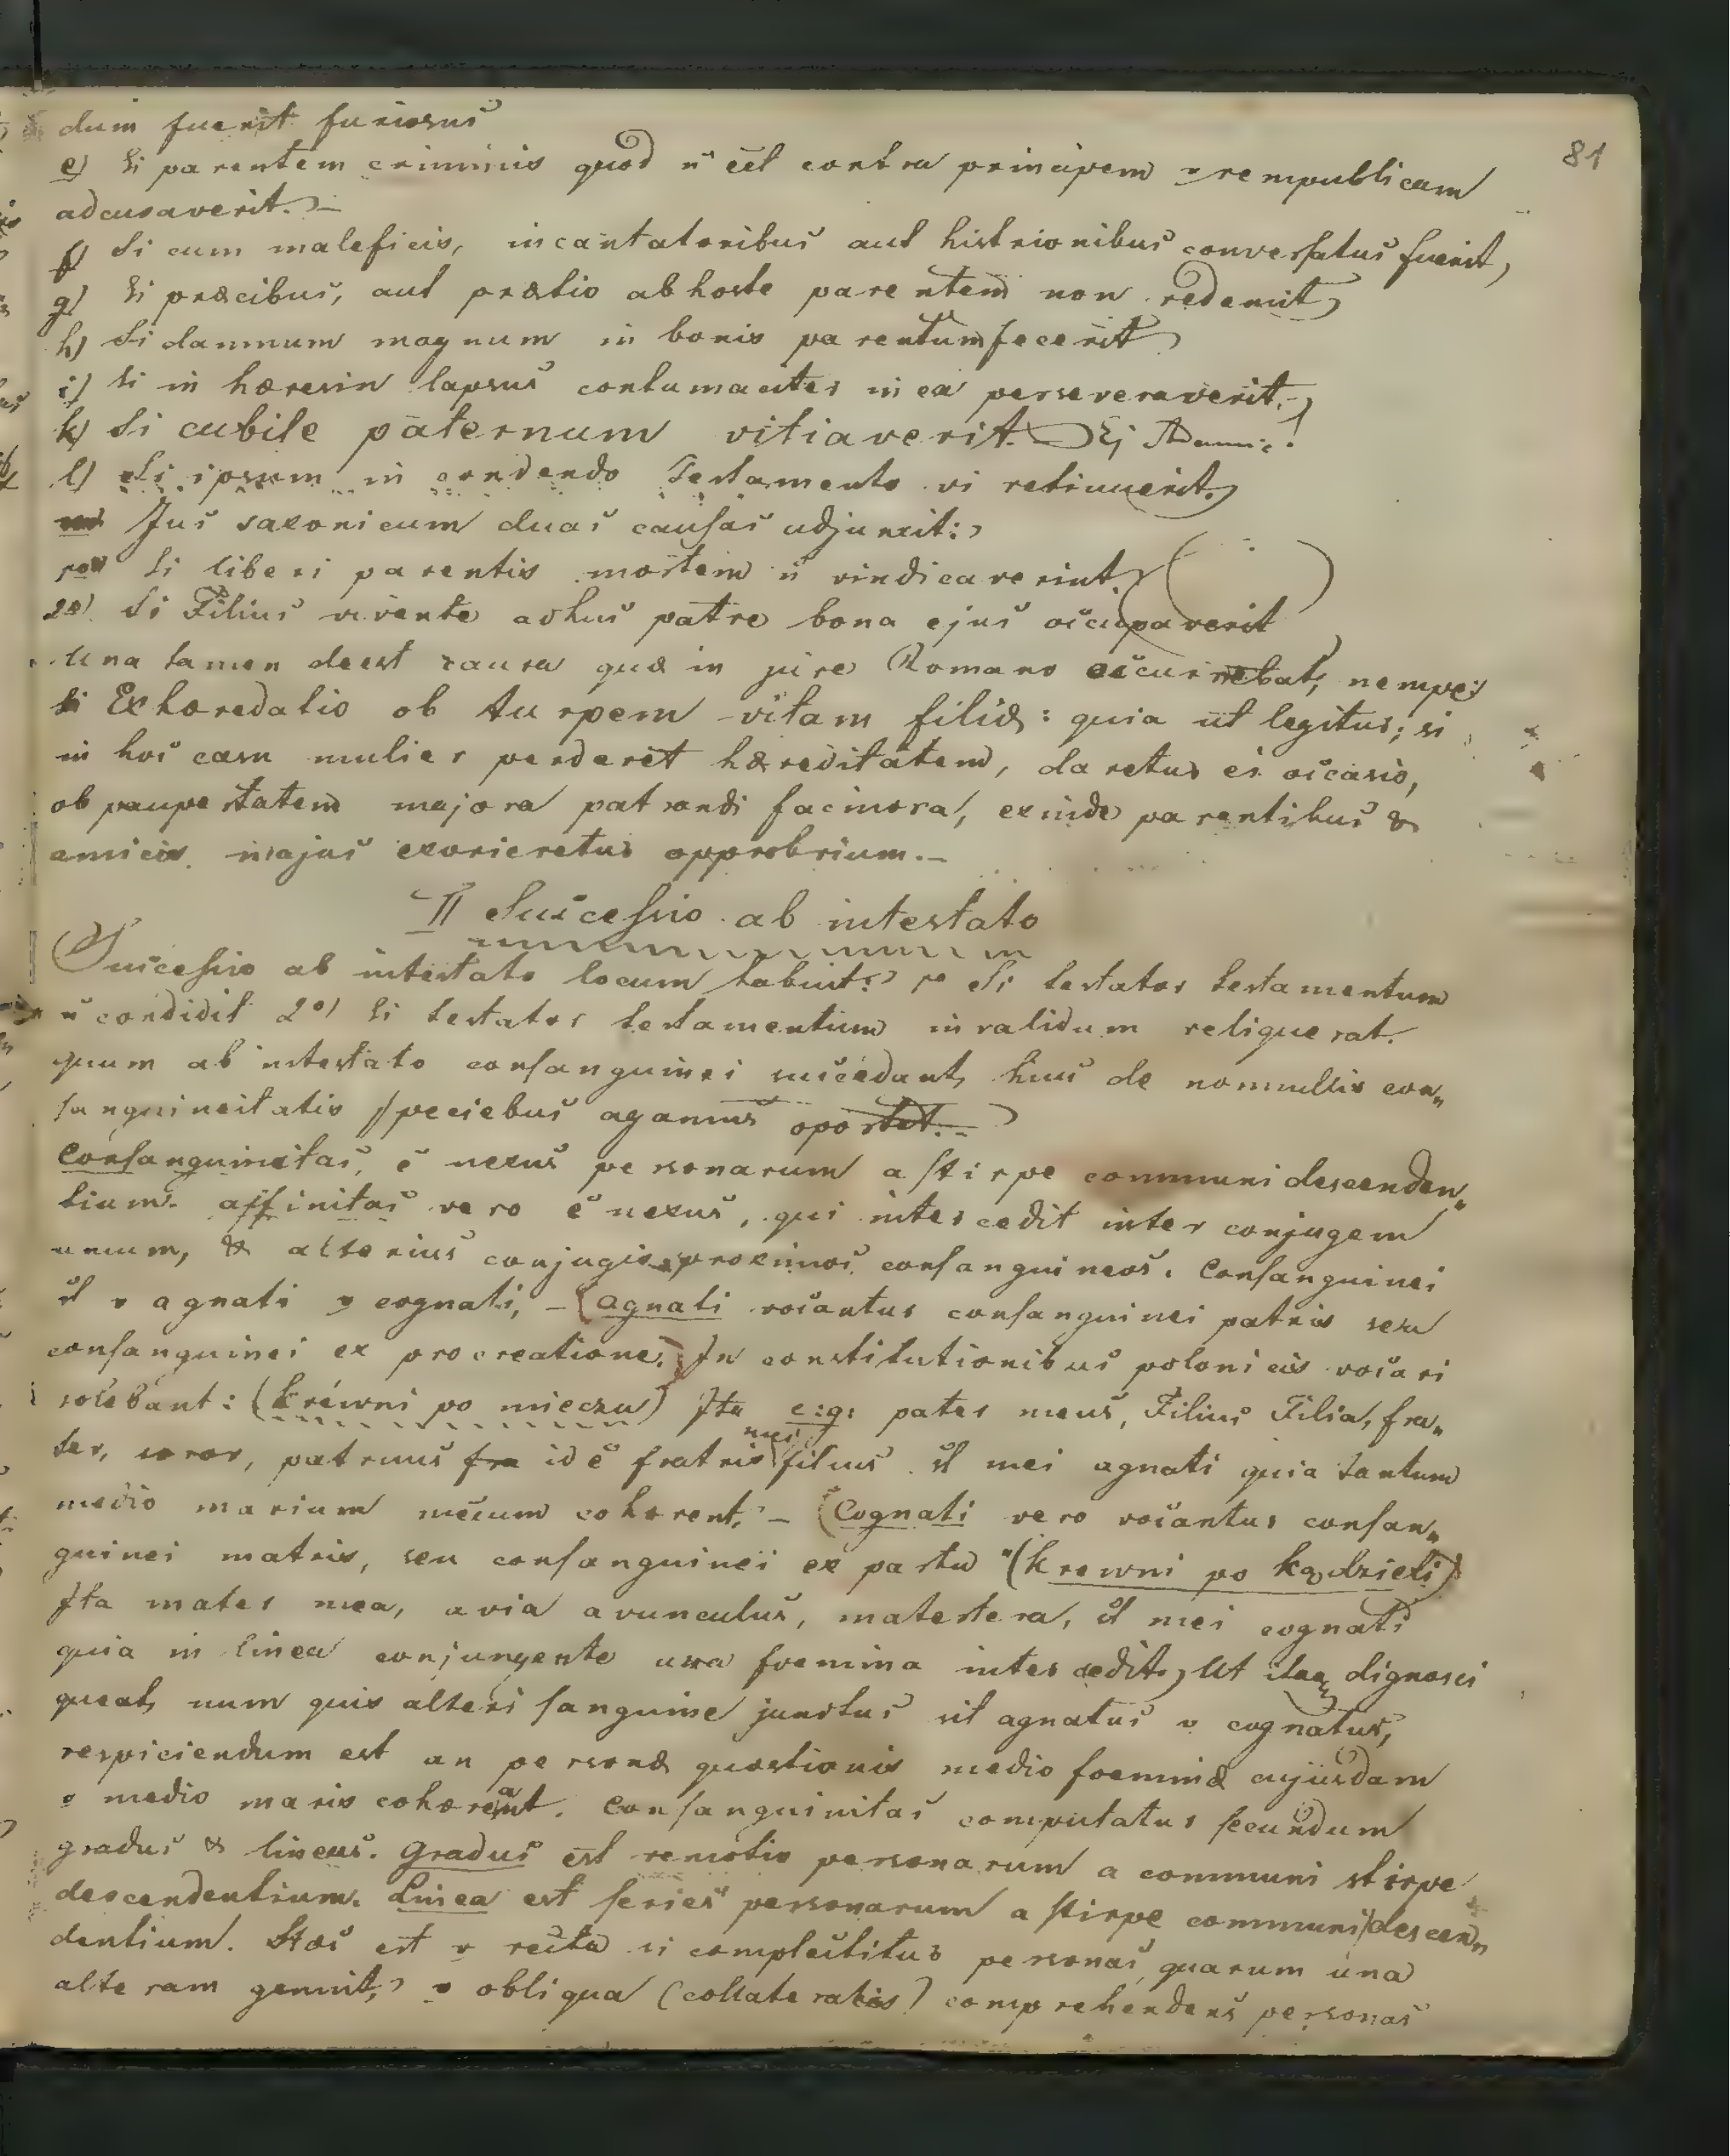 81
dum fuerit furiosus
e) Si parentem criminis quod ñ ēēt contra principem v rempublicam
adcusaverit. –
f) Si cum maleficis, incantatoribus aut histrionibus conversatus fuerit,
g) Si præcibus, aut prætio ab hoste parentem non redemit,
h) Si damnum magnum in bonis parentum fecerit
i) Si in hæresin lapsus contumaciter in ea perseveraverit. –
k) Si cubile paternum vitiaverit. Ej !
l) Si ipsum in condendo Testamento vi retinuerit,
Jus saxonicum duas causas adjunxit:
1o) Si liberi parentis mortem ñ vindicaverint,
2o) Si Filius vivente adhuc patre bona ejus occupaverit
Una tamen deest causa quæ in jure Romano occurrebat, nempe:
Exhæredatio ob turpem vitam filiæ: quia ut legitur; si
in hoc casu mulier perderet hæreditatem, daretur ei occasio,
ob paupertatem majora patrandi facinora, exinde parentibus &
amicis majus exorieretur opprobrium. –
II Successio ab intestato
Successio ab intestato locum habuit: 1o Si testator testamentum
ñ condidit 2o) Si testator testamentum invalidum reliquerat.
quum ab intestato consanguinei succedant, huis de nonnullis con„
sanguineitatis speciebus agamus oportet. –
Consanguineitas, ē nexus personarum a stirpe communi descenden„
tium. affinitas vero ē nexus, qui intercedit inter conjugem
unum, & alterius conjugis proximos consanguineos. Consanguinei
st v agnati v cognati, – (agnati vocantur consanguinei patris seu
consanguinei ex procreatione.) In constitutionibus polonicis vocari
solebant: (krewni po mieczu) Ita e:g: pater meus, Filius Filia, fra„
ter, soror, patruus fra id ē fratris mei filius st mei agnati quia tantum
medio marium mecum cohærent. – (Cognati vero vocantur consan„
guinei matris, seu consanguinei ex partu "(krewni po kądzieli)
Ita mater mea, avia avunculus, matertera, st mei cognati
quia in linea conjungente una foemina intercedit, Ut itaq dignosci
queat, num quis alteri sanguine junctus sit agnatus v cognatus,
respiciendum est an personæ quæstionis medio foeminæ cujusdam
v medio maris cohæreant. Consanguinitas computatur secundum
gradus & lineas. Gradus est remotio personarum a communi stirpe
descendentium. Linea est series personarum a stirpe communi descen„
dentium. Hæc est v recta si complectitur personas, quarum una
alteram genuit, v obliqua (collateralis) comprehendens personas